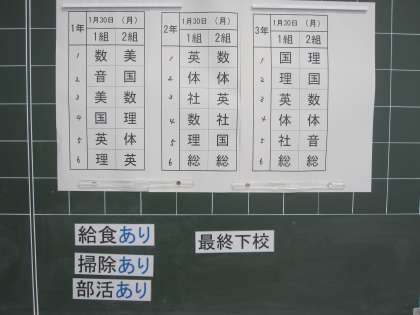 1年 1月30日 (月)
1組 2組
1 数 美
2 音 国
3 美 数
4 国 理
5 英 体
6 理 英
2年 1月30日 (月)
1組 2組
1 英 数
2 体 体
3 社 英
4 数 社
5 理 国
6 総 総
3年 1月30日 (月)
1組 2組
1 国 理
2 理 国
3 英 数
4 体 体
5 社 音
6 総 総
給食あり
掃除あり
部活あり
最終下校